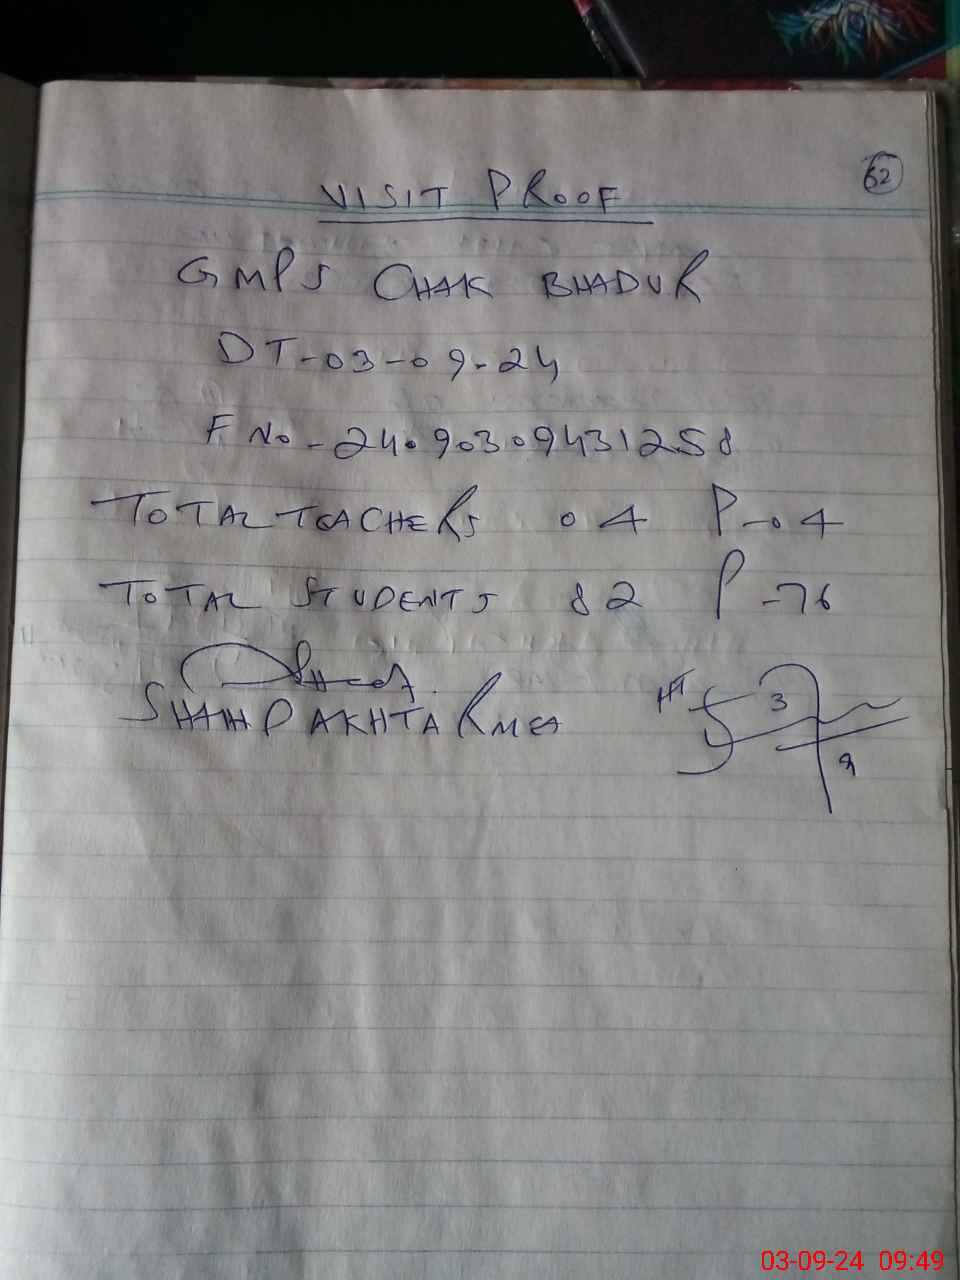 62
VISIT PROOF
GMPS CHAK BHADUR
DT-03-09-24
F No-24090309431258
TOTAL TEACHERS 04 P-04
TOTAL STUDENTS 82 P-76
AKHTAR MEA
HT
3
9
03-09-24 09:49